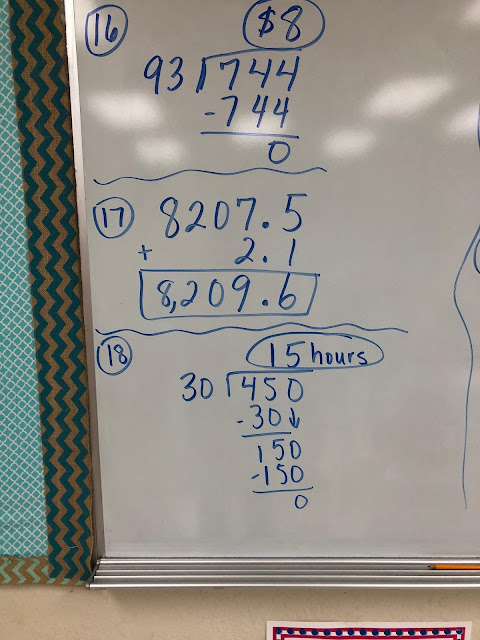 16 $8
93 744
-744
0
17 8207.5
+ 2.1
8,209.6
18 15 hours
30 450
-30↓
150
-150
0